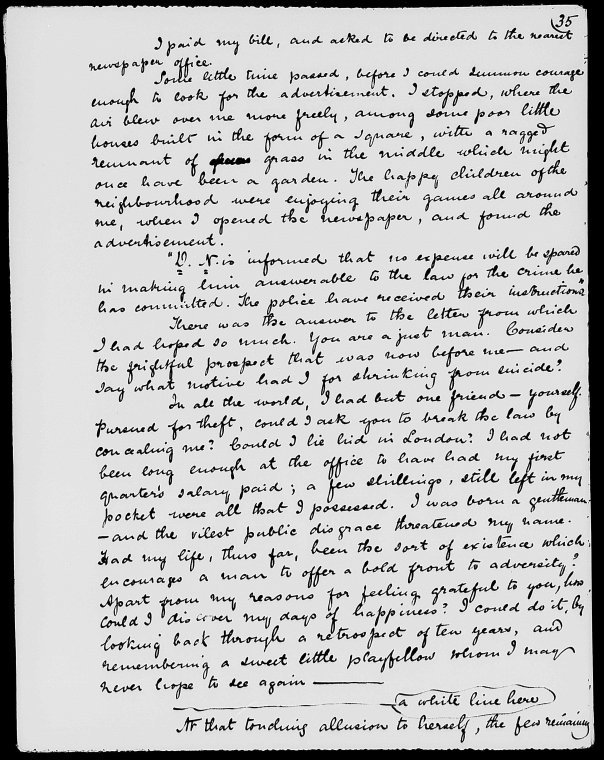 35
I paid my bill, and asked to be directed to the nearest
newspaper office.
Some little time passed, before I could summon courage
enough to look for the advertisement. I stopped, where the
air blew over me more freely, among some poor little
houses built in the form of a square, with a ragged
remnant of grass in the middle which might
once have been a garden. The happy children of the
neighbourhood were enjoying their games all around
me, when I opened the newspaper, and found the
advertisement.
"D. N. is informed that no expense will be spared
in making him answerable to the law for the crime he
has committed. The police have received their instructions."
There was the answer to the letter from which
I had hoped so much. You are a just man. Consider
the frightful prospect that was now before me — and
say what motive had I for shrinking from suicide?
In all the world, I had but one friend — yourself.
Pursued for theft, could I ask you to break the law by
concealing me? Could I lie hid in London? I had not
been long enough at the office to have had my first
quarter's salary paid; a few shillings, still left in my
pocket were all that I possessed. I was born a gentleman
— and the vilest public disgrace threatened my name.
Had my life, thus far, been the sort of existence which
encourages a man to offer a bold front to adversity?
Apart from my reasons for feeling grateful to you, how
could I discover my days of happiness? I could do it, by
looking back through a retrospect of ten years, and
remembering a sweet little playfellow whom I may
never hope to see again ——
a white line here
At that touching allusion to herself, the few remaining